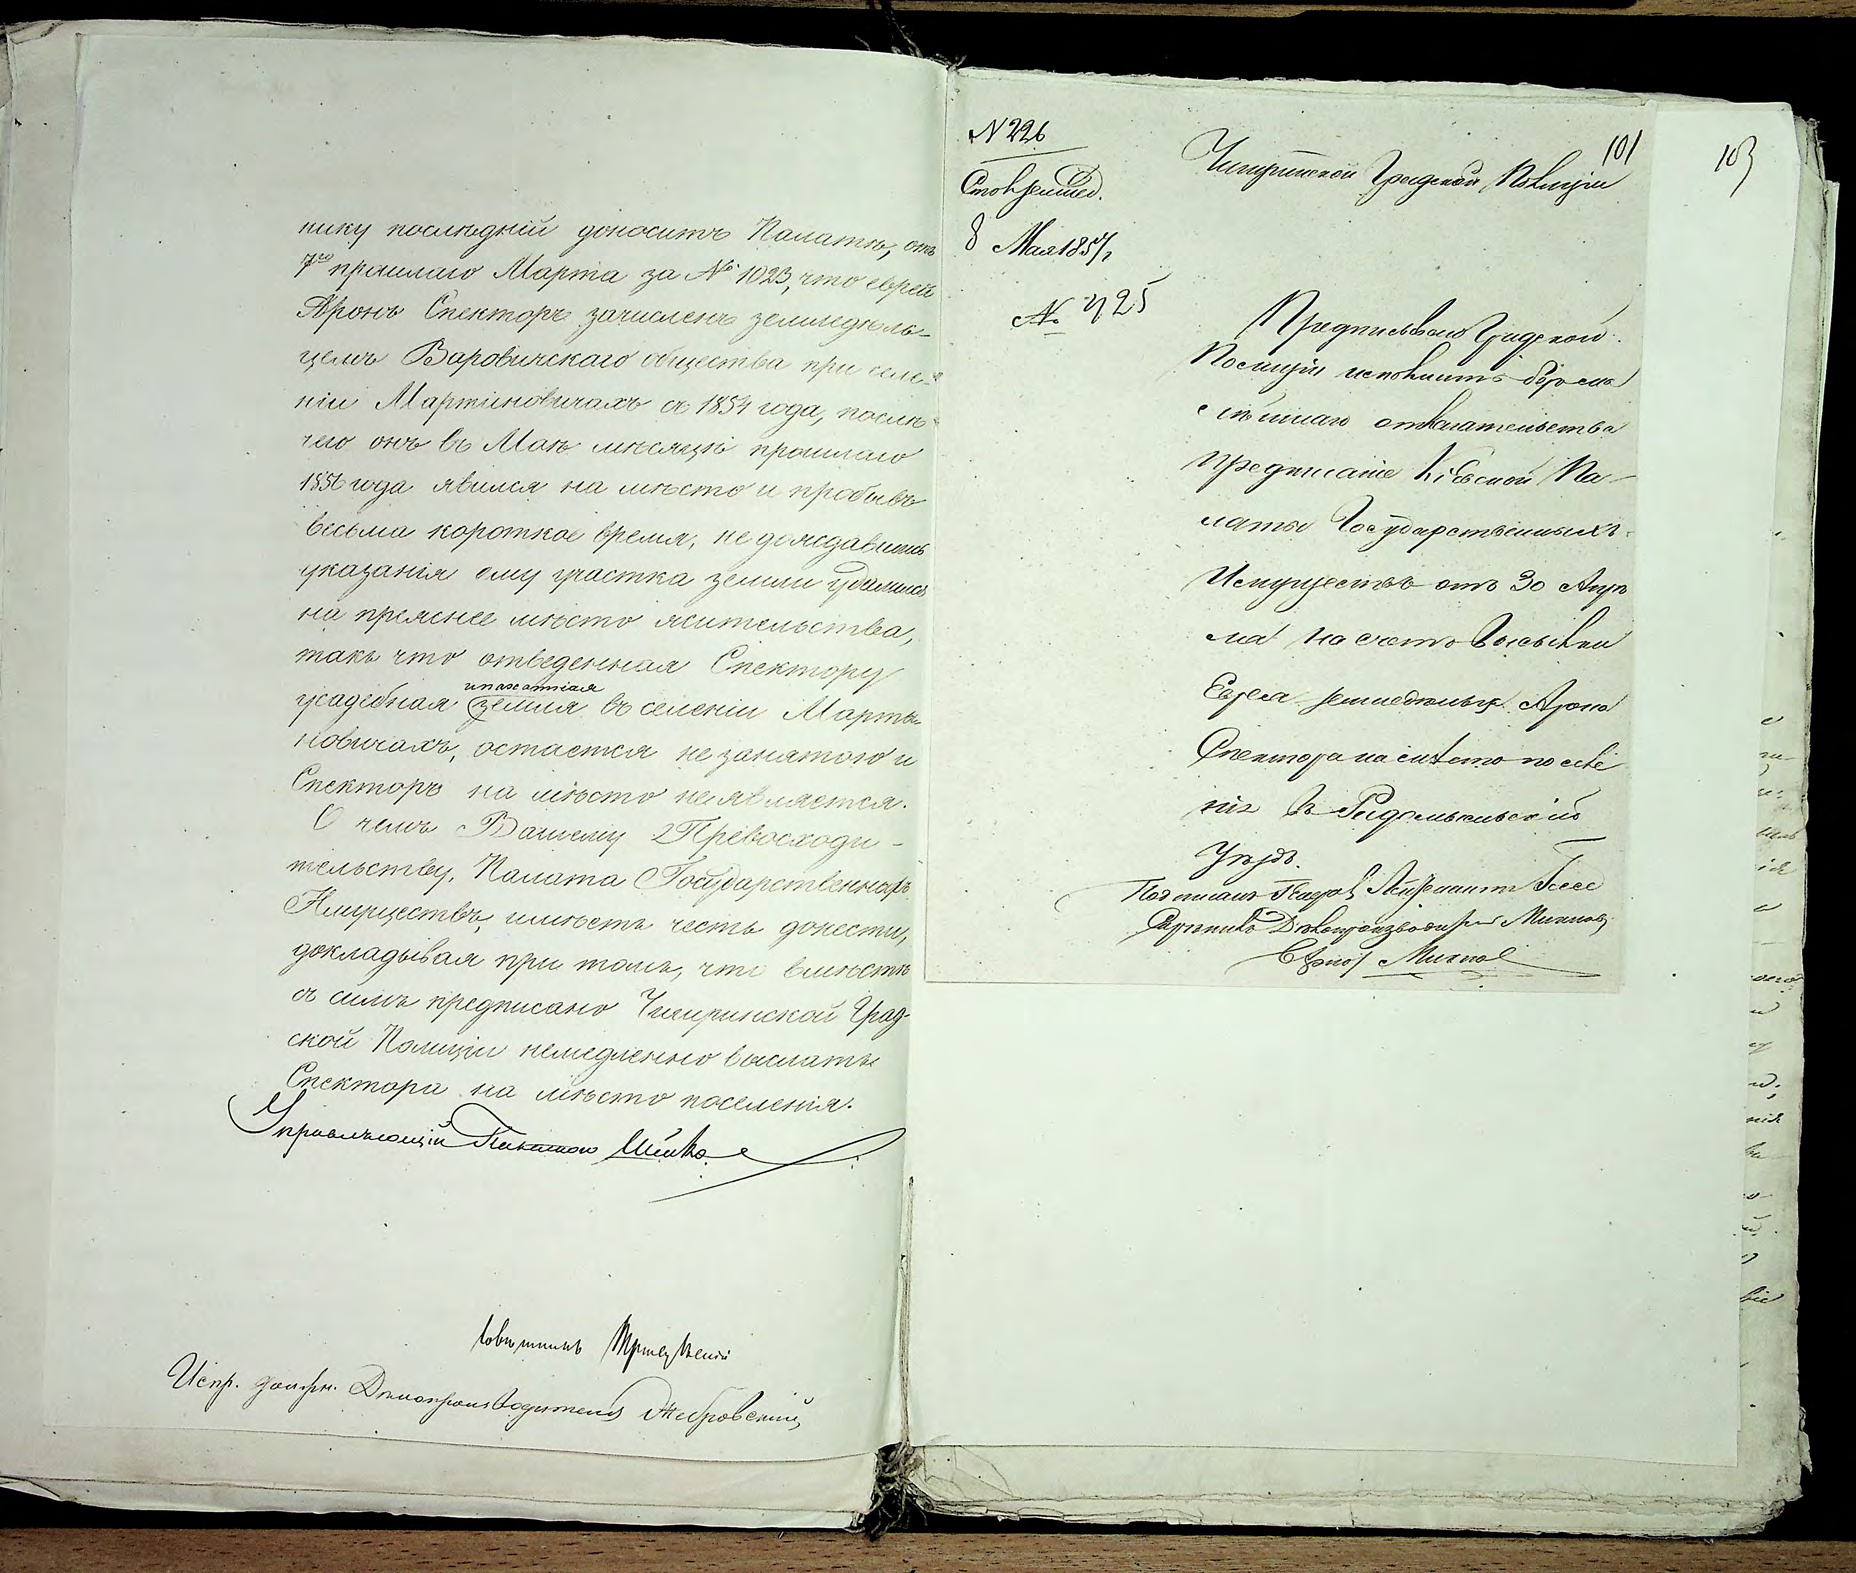 нику послѣдній доноситъ Палатѣ, отъ
7го прошлаго Марта за № 1023, что еврей
Аронъ Спекторъ зачисленъ земледѣль-
цемъ Варовичскаго общества при селе-
ніи Мартыновичахъ съ 1854 года, послѣ
чего онъ въ Маѣ мѣсяцѣ прошлаго
1856 года явился на мѣсто и пробывъ
весьма короткое время, не дождавшись
указанія ему участка земли удалился
на прежнее мѣсто жительства,
такъ что отведенная Спектору
усадебная земля въ селеніи Марты-
новичахъ, остается не занятою и
Спекторъ на мѣсто не является.
О чемъ Вашему Превосходи-
тельству, Палата Государственныхъ
Имуществъ, имѣетъ честь донести,
докладывая при томъ, что вмѣстѣ
съ симъ предписано Чигиринской Град-
ской Полиціи немедленно выслать
Спектора на мѣсто поселенія.
Управляющій Палатою
Совѣтникъ
Испр. должн. Дѣлопроизводителя
N 226
101
103
Чигиринской Градской Полиціи
8 Мая 1857
№ 725
Предписываю Градской
Полиціи исполнить безъ ма
лѣйшаго отлагательства
предписаніе Кіевской Па-
латы Государственныхъ
Имуществъ отъ 30 Апрѣ
ля на счетъ высылки
Еврея земледѣльца Арона
Спектора на мѣсто поселе
нія въ Радомысльскій
Уѣздъ.
Подписалъ Генералъ Лейтенантъ Гессе
Скрѣпилъ Дѣлопроизводитель